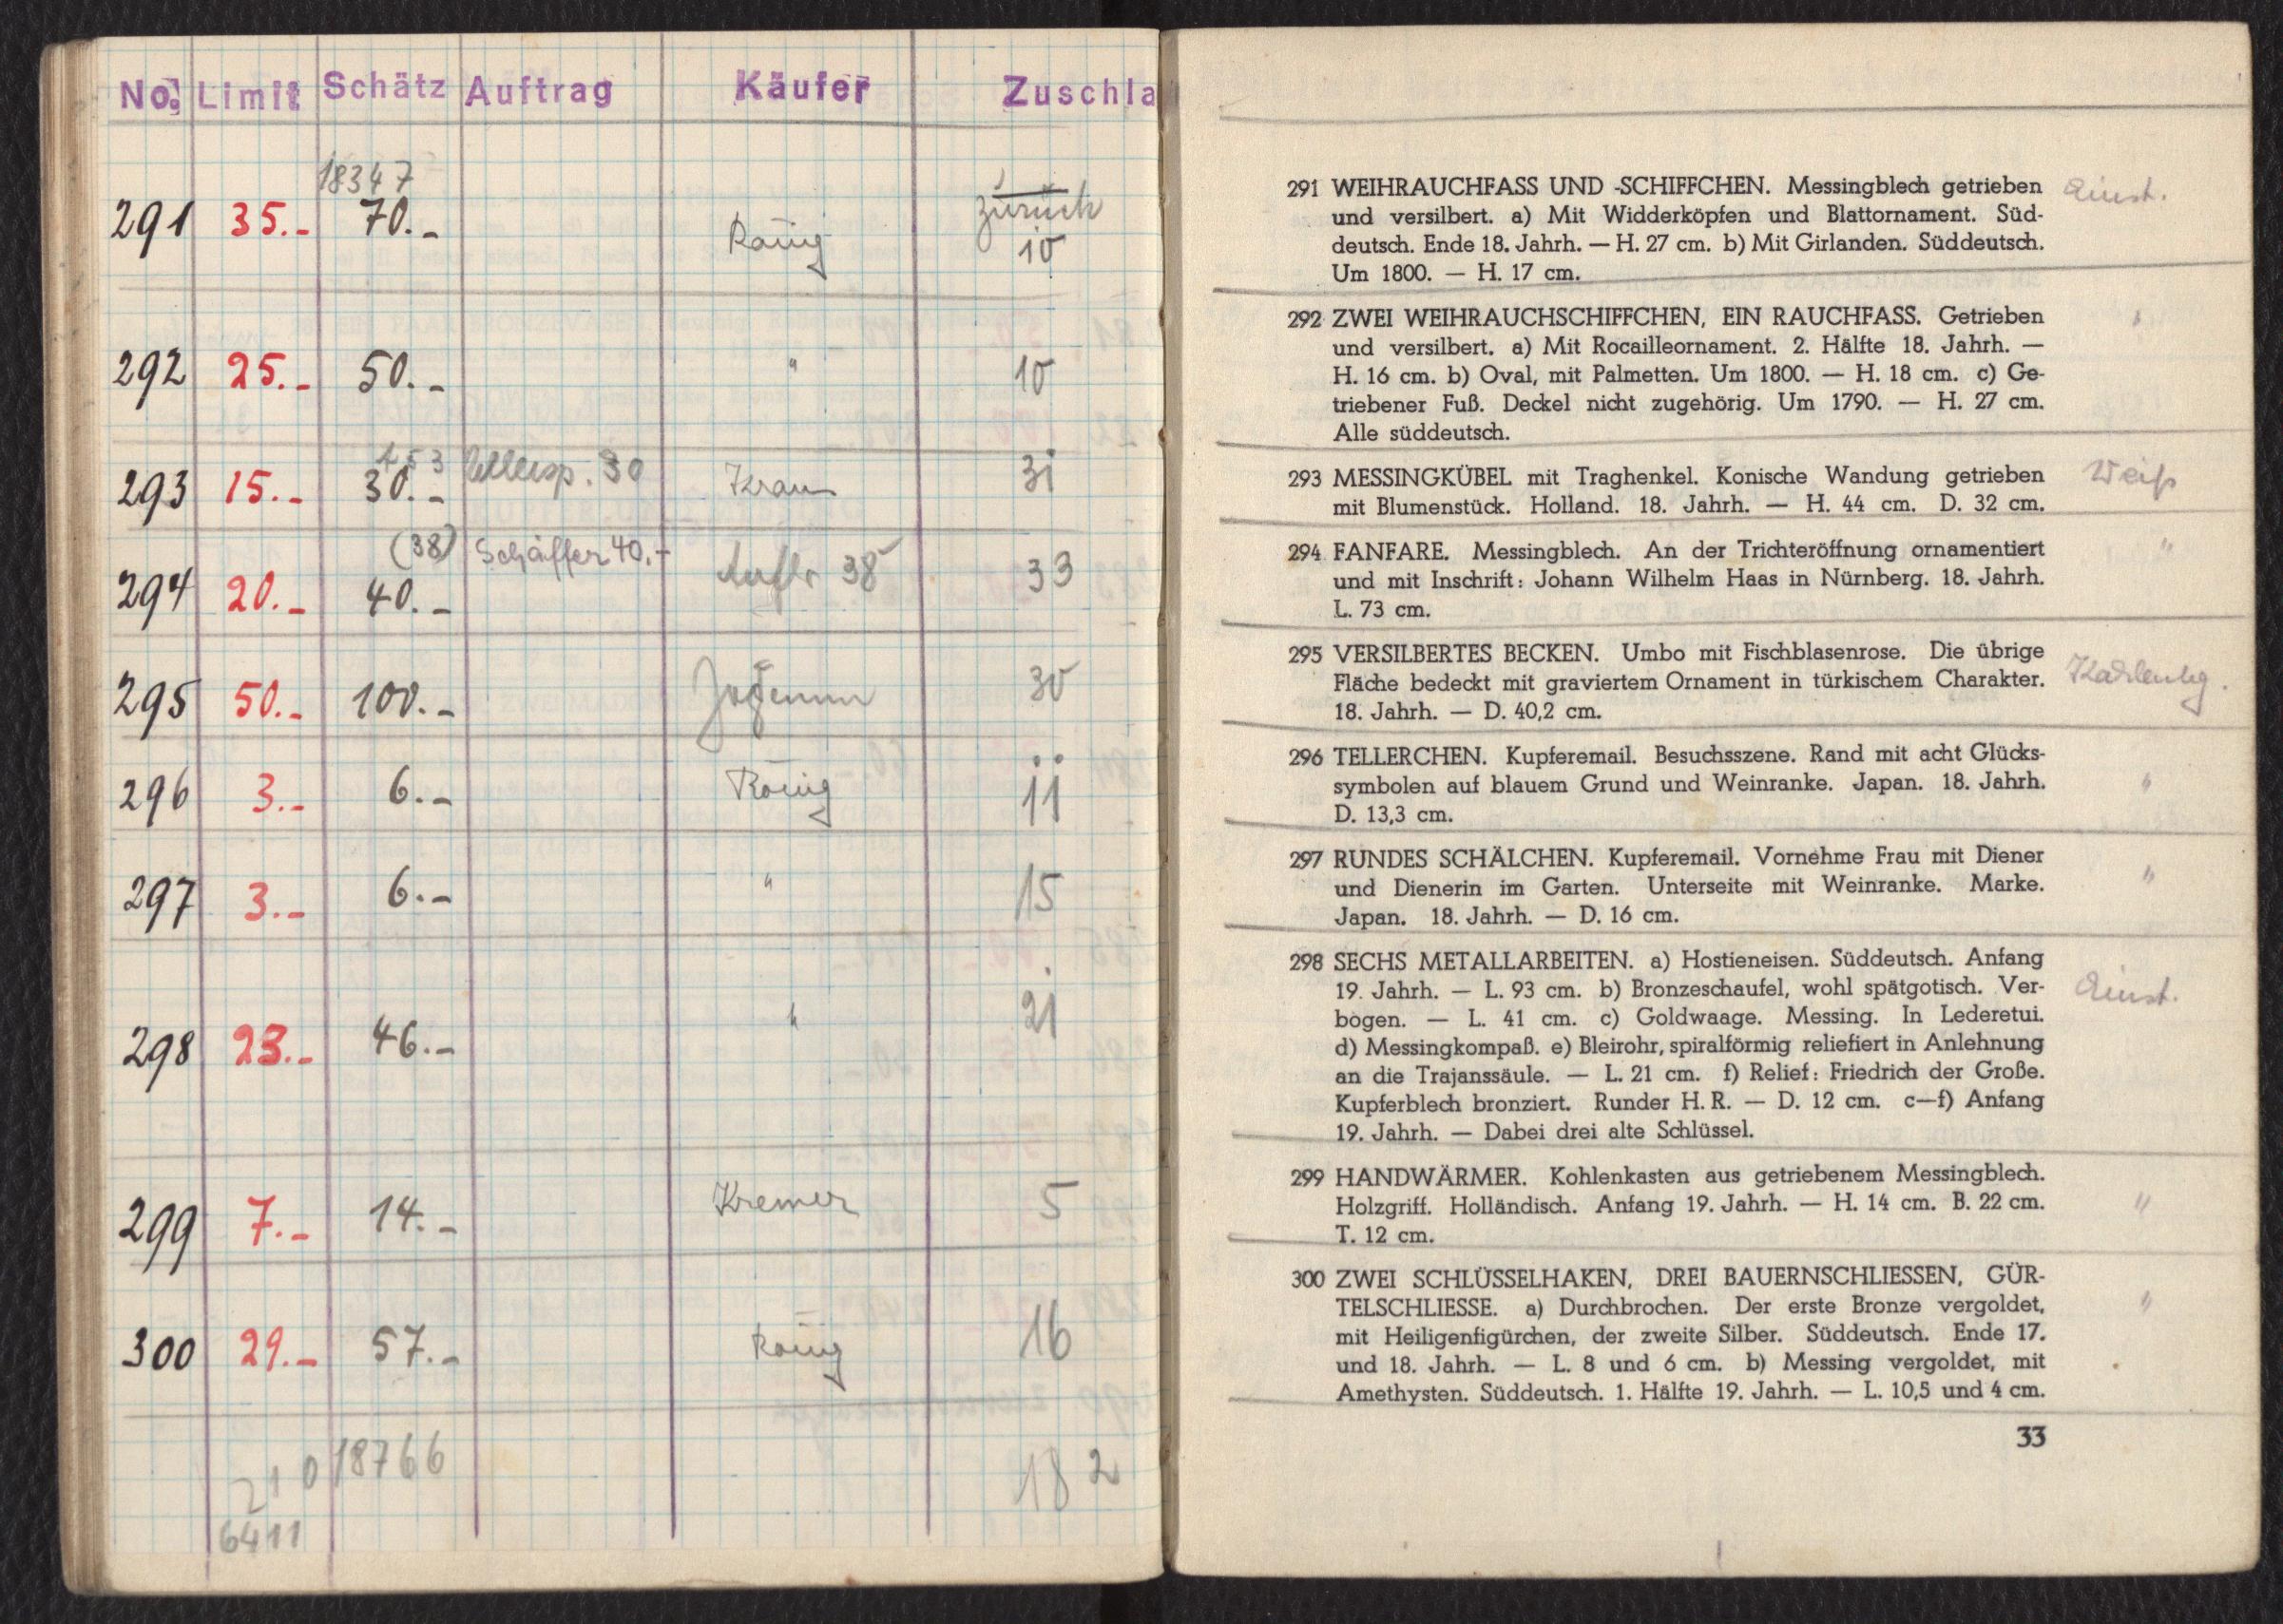 No. Limit Schätz Auftrag Käufer Zuschla
18347
291 35.- 70.- König zurück
10
292 25.- 50.- " 10
293 15.- 30.- 30 Kraus 31
(38) Schäffer 40.-
294 20.- 40.- 38 33
295 50.- 100.- 30
296 3.- 6.- König 11
297 3.- 6.- " 15
298 23.- 46.- " 21
299 7.- 14.- Kremer 5
300 29.- 57.- König 16
210 18766 182
6411
291 WEIHRAUCHFASS UND -SCHIFFCHEN. Messingblech getrieben
und versilbert. a) Mit Widderköpfen und Blattornament. Süd-
deutsch. Ende 18. Jahrh. — H. 27 cm. b) Mit Girlanden. Süddeutsch.
Um 1800. — H. 17 cm.
292 ZWEI WEIHRAUCHSCHIFFCHEN, EIN RAUCHFASS. Getrieben
und versilbert. a) Mit Rocailleornament. 2. Hälfte 18. Jahrh. —
H. 16 cm. b) Oval, mit Palmetten. Um 1800. — H. 18 cm. c) Ge-
triebener Fuß. Deckel nicht zugehörig. Um 1790. — H. 27 cm.
Alle süddeutsch.
293 MESSINGKÜBEL mit Traghenkel. Konische Wandung getrieben Weiß
mit Blumenstück. Holland. 18. Jahrh. — H. 44 cm. D. 32 cm.
294 FANFARE. Messingblech. An der Trichteröffnung ornamentiert "
und mit Inschrift: Johann Wilhelm Haas in Nürnberg. 18. Jahrh.
L. 73 cm.
295 VERSILBERTES BECKEN. Umbo mit Fischblasenrose. Die übrige
Fläche bedeckt mit graviertem Ornament in türkischem Charakter.
18. Jahrh. — D. 40,2 cm.
296 TELLERCHEN. Kupferemail. Besuchsszene. Rand mit acht Glücks-
symbolen auf blauem Grund und Weinranke. Japan. 18. Jahrh. "
D. 13,3 cm.
297 RUNDES SCHÄLCHEN. Kupferemail. Vornehme Frau mit Diener
und Dienerin im Garten. Unterseite mit Weinranke. Marke. "
Japan. 18. Jahrh. — D. 16 cm.
298 SECHS METALLARBEITEN. a) Hostieneisen. Süddeutsch. Anfang
19. Jahrh. — L. 93 cm. b) Bronzeschaufel, wohl spätgotisch. Ver-
bogen. — L. 41 cm. c) Goldwaage. Messing. In Lederetui.
d) Messingkompaß. e) Bleirohr, spiralförmig reliefiert in Anlehnung
an die Trajanssäule. — L. 21 cm. f) Relief: Friedrich der Große.
Kupferblech bronziert. Runder H. R. — D. 12 cm. c—f) Anfang
19. Jahrh. — Dabei drei alte Schlüssel.
299 HANDWÄRMER. Kohlenkasten aus getriebenem Messingblech.
Holzgriff. Holländisch. Anfang 19. Jahrh. — H. 14 cm. B. 22 cm. "
T. 12 cm.
300 ZWEI SCHLÜSSELHAKEN, DREI BAUERNSCHLIESSEN, GÜR-
TELSCHLIESSE. a) Durchbrochen. Der erste Bronze vergoldet, "
mit Heiligenfigürchen, der zweite Silber. Süddeutsch. Ende 17.
und 18. Jahrh. — L. 8 und 6 cm. b) Messing vergoldet, mit
Amethysten. Süddeutsch. 1. Hälfte 19. Jahrh. — L. 10,5 und 4 cm.
33